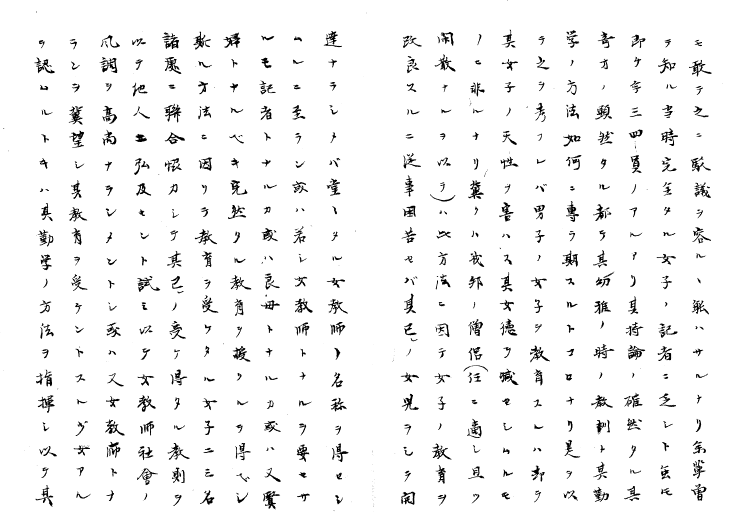 モ敢テ之ニ駁議ヲ容ルヽ能ハサルナリ余嘗曽
テ知ル当時完全タル女子ノ記者ニ乏シト虽𪜈
即ケ今三四員ノアルアリ其持論ノ確然タル其
奇才ノ顕然タル都テ其幼雅ノ時ノ教訓ト其勤
学ノ方法如何ニ専ラ期スルトコロナリ是ヲ以
テ之ヲ考フレバ男子ノ女子ヲ教育スルハ却テ
其女子ノ天性ヲ害ハス其女徳ヲ減セシムルモ
ノニ非ルナリ冀クハ我邦ノ僧侶(任ニ適シ且ツ
閑散ナルヲ以テ)ハ此方法ニ因テ女子ノ教育ヲ
改良スルニ従事困苦セバ其已ノ女児ヲシテ闲
達ナラシメバ堂〻タル女教師ノ名称ヲ得セシ
ムルニ至ラン或ハ若シ女教師トナルヲ要セサ
ルモ記者トナルカ或ハ良母トナルカ或ハ又賢
婦トナルベキ完然タル教育ヲ授クルヲ得ベシ
斯ル方法ニ因リテ教育ヲ受ケタル女子ニ三名
諸處ニ聯合恢カシテ其已ノ受ケ得タル教則ヲ
以テ他人ニ弘及セント試ミ以テ女教師社會ノ
風調ヲ高尚ナラシメントシ或ハ又女教師トナ
ランヲ冀望シ其教育ヲ受ケントスル少女アル
ヲ認ムルトキハ其勤学ノ方法ヲ指揮シ以テ其